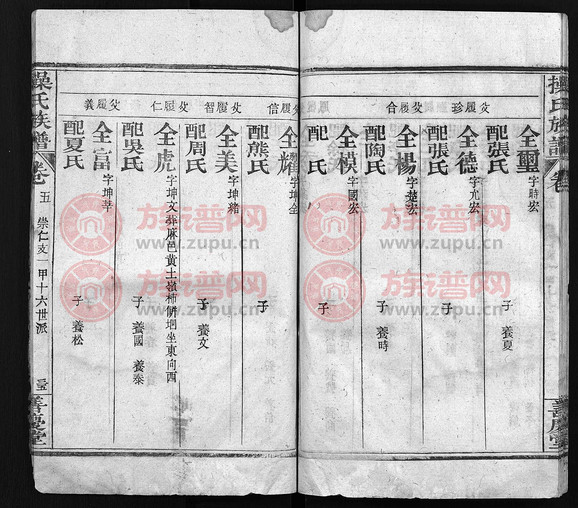 操氏族譜
父履珍
全璽字時宏
配張氏
子 養夏
全德字尤宏
配張氏
父履合
全楊字楚宏
配陶氏
子 養時
全模字國宏
配 氏
子
父履信
全耀字坤全
配熊氏
子
父履智
全美字坤緒
配周氏
子 養文
父履仁
全虎字坤文葬麻邑黄土嶺柿餅坦坐東向西
配吳氏
子 養國 養泰
父履義
全富字坤華
配夏氏
子 養松
操氏族譜
卷 五 崇仁支一甲十六世派
善慶堂
族谱网
www.zupu.cn
族谱网
www.zupu.cn
族谱网
www.zupu.cn
族谱网
www.zupu.cn